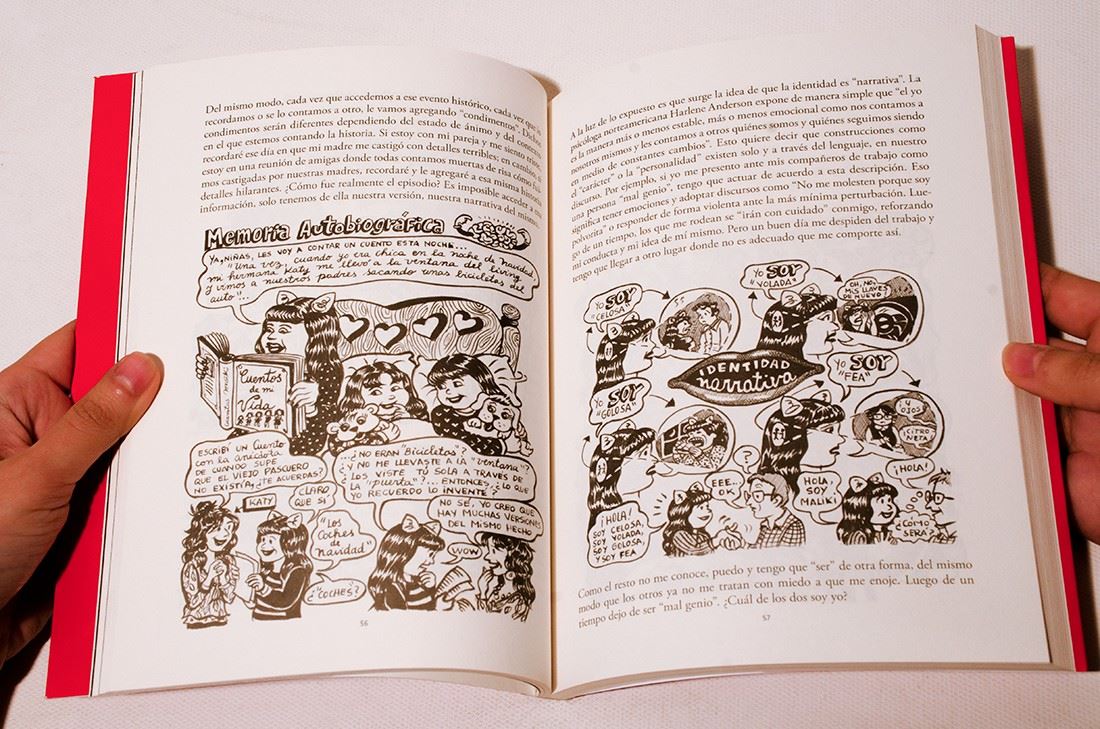 Del mismo modo, cada vez que accedemos a ese evento histórico, cada vez que lo
recordamos o se lo contamos a otro, le vamos agregando “condimentos”. Dichos
condimentos serán diferentes dependiendo del estado de ánimo y del contexto
en el que estemos contando la historia. Si estoy con mi pareja y me siento triste,
recordaré ese día en que mi madre me castigó con detalles terribles; en cambio, si
estoy en una reunión de amigas donde todas contamos muertas de risa cómo fui-
mos castigadas por nuestras madres, recordaré y le agregaré a esa misma historia
detalles hilarantes. ¿Cómo fue realmente el episodio? Es imposible acceder a esa
información, solo tenemos de ella nuestra versión, nuestra narrativa del mismo.
Memoria Autobiográfica
YA, NIÑAS, LES VOY A CONTAR UN CUENTO ESTA NOCHE...
"Una vez, cuando yo era chica en la noche de navidad,
mi hermana Katy me llevó a la ventana del living
y vimos a nuestros padres sacando unas bicicletas del
auto"...
Cuentos
de mi
Vida
ESCRIBÍ UN CUENTO
CON LA ANÉCDOTA
DE CUANDO SUPE
QUE EL VIEJO PASCUERO
NO EXISTÍA, ¿TE ACUERDAS?
¿NO ERAN "Bicicletas"?
¿Y NO ME LLEVASTE A LA "ventana"?
¿LOS VISTE TÚ SOLA A TRAVÉS DE
LA "puerta"?... ENTONCES ¿LO QUE
YO RECUERDO LO INVENTÉ?
KATY
CLARO
QUE SÍ
"LOS
Coches
de
navidad"
¿"COCHES"?
NO SÉ, YO CREO QUE
HAY MUCHAS VERSIONES
DEL MISMO HECHO
WOW
56
A la luz de lo expuesto es que surge la idea de que la identidad es “narrativa”. La
psicóloga norteamericana Harlene Anderson expone de manera simple que “el yo
es la manera más o menos estable, más o menos emocional como nos contamos a
nosotros mismos y les contamos a otros quiénes somos y quiénes seguimos siendo
en medio de constantes cambios”. Esto quiere decir que construcciones como
el “carácter” o la “personalidad” existen solo y a través del lenguaje, en nuestro
discurso. Por ejemplo, si yo me presento ante mis compañeros de trabajo como
una persona “mal genio”, tengo que actuar de acuerdo a esta descripción. Eso
significa tener emociones y adoptar discursos como “No me molesten porque soy
polvorita” o responder de forma violenta ante la más mínima perturbación. Lue-
go de un tiempo, los que me rodean se “irán con cuidado” conmigo, reforzando
mi conducta y mi idea de mí mismo. Pero un buen día me despiden del trabajo y
tengo que llegar a otro lugar donde no es adecuado que me comporte así.
YO SOY
"CELOSA"
YO SOY
"VOLADA"
OH, NO,
MIS LLAVES
DE NUEVO
IDENTIDAD
narrativa
YO SOY
"GOLOSA"
YO SOY
"FEA"
4
OJOS
CITRO
NETA
¡HOLA!
SOY CELOSA,
SOY VOLADA,
SOY GOLOSA,
Y SOY FEA
EEE..
OK
?
HOLA
SOY
MALIKI
¡HOLA!
¿CÓMO
SERÁ?
Como el resto no me conoce, puedo y tengo que “ser” de otra forma, del mismo
modo que los otros ya no me tratan con miedo a que me enoje. Luego de un
tiempo dejo de ser “mal genio”. ¿Cuál de los dos soy yo?
57